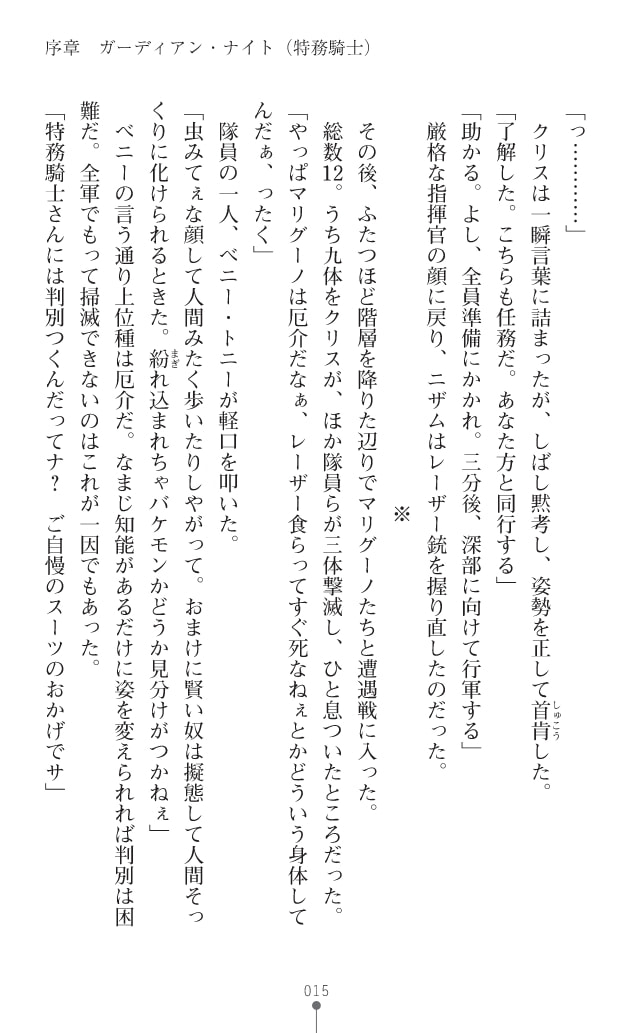 序章　ガーディアン・ナイト（特務騎士）
「っ…………」
　クリスは一瞬言葉に詰まったが、しばし黙考し、姿勢を正して首肯した。
しゅこう
「了解した。こちらも任務だ。あなた方と同行する」
「助かる。よし、全員準備にかかれ。三分後、深部に向けて行軍する」
　厳格な指揮官の顔に戻り、ニザムはレーザー銃を握り直したのだった。
※
　その後、ふたつほど階層を降りた辺りでマリグーノたちと遭遇戦に入った。
　総数12。うち九体をクリスが、ほか隊員らが三体撃滅し、ひと息ついたところだった。
「やっぱマリグーノは厄介だなぁ、レーザー食らってすぐ死なねぇとかどういう身体して
んだぁ、ったく」
　隊員の一人、ベニー・トニーが軽口を叩いた。
「虫みてぇな顔して人間みたく歩いたりしやがって。おまけに賢い奴は擬態して人間そっ
くりに化けられるときた。紛れ込まれちゃバケモンかどうか見分けがつかねぇ」
まぎ
　ベニーの言う通り上位種は厄介だ。なまじ知能があるだけに姿を変えられれば判別は困
難だ。全軍でもって掃滅できないのはこれが一因でもあった。
「特務騎士さんには判別つくんだってナ？　ご自慢のスーツのおかげでサ」
015